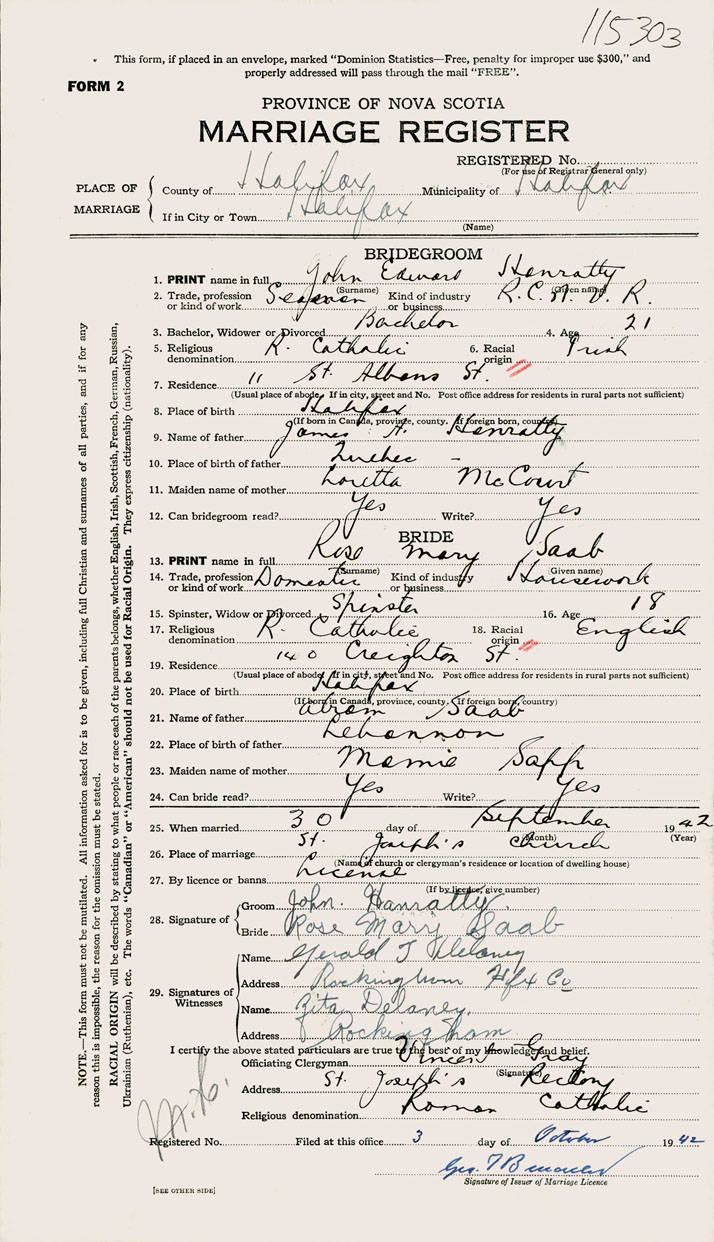 115303
This form, if placed in an envelope, marked "Dominion Statistics—Free, penalty for improper use $300," and
properly addressed will pass through the mail "FREE".
FORM 2
PROVINCE OF NOVA SCOTIA
MARRIAGE REGISTER
REGISTERED No.
(For use of Registrar General only)
PLACE OF MARRIAGE
County of Halifax Municipality of Halifax
If in City or Town Halifax
(Name)
BRIDEGROOM
1. PRINT name in full John Edward Henratty
(Surname) (Given name)
2. Trade, profession or kind of work Seaman Kind of industry or business R.C.N.V.R.
3. Bachelor, Widower or Divorced Bachelor 4. Age 21
5. Religious denomination R. Catholic 6. Racial origin Irish
7. Residence 11 St. Albans St.
(Usual place of abode. If in city, street and No. Post office address for residents in rural parts not sufficient)
8. Place of birth Halifax
(If born in Canada, province, county. If foreign born, country)
9. Name of father James A. Henratty
10. Place of birth of father Quebec -
11. Maiden name of mother Loretta McCourt
12. Can bridegroom read? Yes Write? Yes
BRIDE
13. PRINT name in full Rose Mary Saab
(Surname) (Given name)
14. Trade, profession or kind of work Domestic Kind of industry or business Housework
15. Spinster, Widow or Divorced Spinster 16. Age 18
17. Religious denomination R. Catholic 18. Racial origin English
19. Residence 140 Creighton St.
(Usual place of abode. If in city, street and No. Post office address for residents in rural parts not sufficient)
20. Place of birth Halifax
(If born in Canada, province, county. If foreign born, country)
21. Name of father Abram Saab
22. Place of birth of father Lebannon
23. Maiden name of mother Mamie Sapp
24. Can bride read? Yes Write? Yes
25. When married 30 day of September 1942
(Month) (Year)
26. Place of marriage St. Joseph's Church
(Name of church or clergyman's residence or location of dwelling house)
27. By licence or banns License
(If by license, give number)
28. Signature of
Groom John Hanratty
Bride Rose Mary Saab
29. Signatures of Witnesses
Name Gerald J Delaney
Address Rockingham Hfx Co
Name Rita Delaney
Address Rockingham
I certify the above stated particulars are true to the best of my knowledge and belief.
Officiating Clergyman Vincent Gray
(Signature)
Address St. Joseph's Rectory
Religious denomination Roman Catholic
Registered No. Filed at this office 3 day of October 1942
Geo.
Signature of Issuer of Marriage Licence
[SEE OTHER SIDE]
NOTE.—This form must not be mutilated. All information asked for is to be given, including full Christian and surnames of all parties, and if for any
reason this is impossible, the reason for the omission must be stated.
RACIAL ORIGIN will be described by stating to what people or race each of the parents belongs, whether English, Irish, Scottish, French, German, Russian,
Ukrainian (Ruthenian), etc. The words "Canadian" or "American" should not be used for Racial Origin. They express citizenship (nationality).